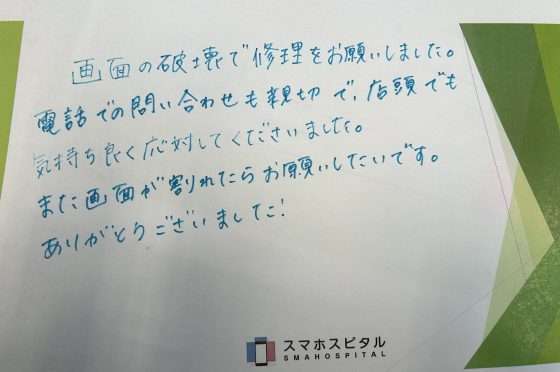 画面の破壊で修理をお願いしました。
電話での問い合わせも親切で、店頭でも
気持ち良く応対してくださいました。
また画面が割れたらお願いしたいです。
ありがとうございました!
スマホスピタル
SMAHOSPITAL